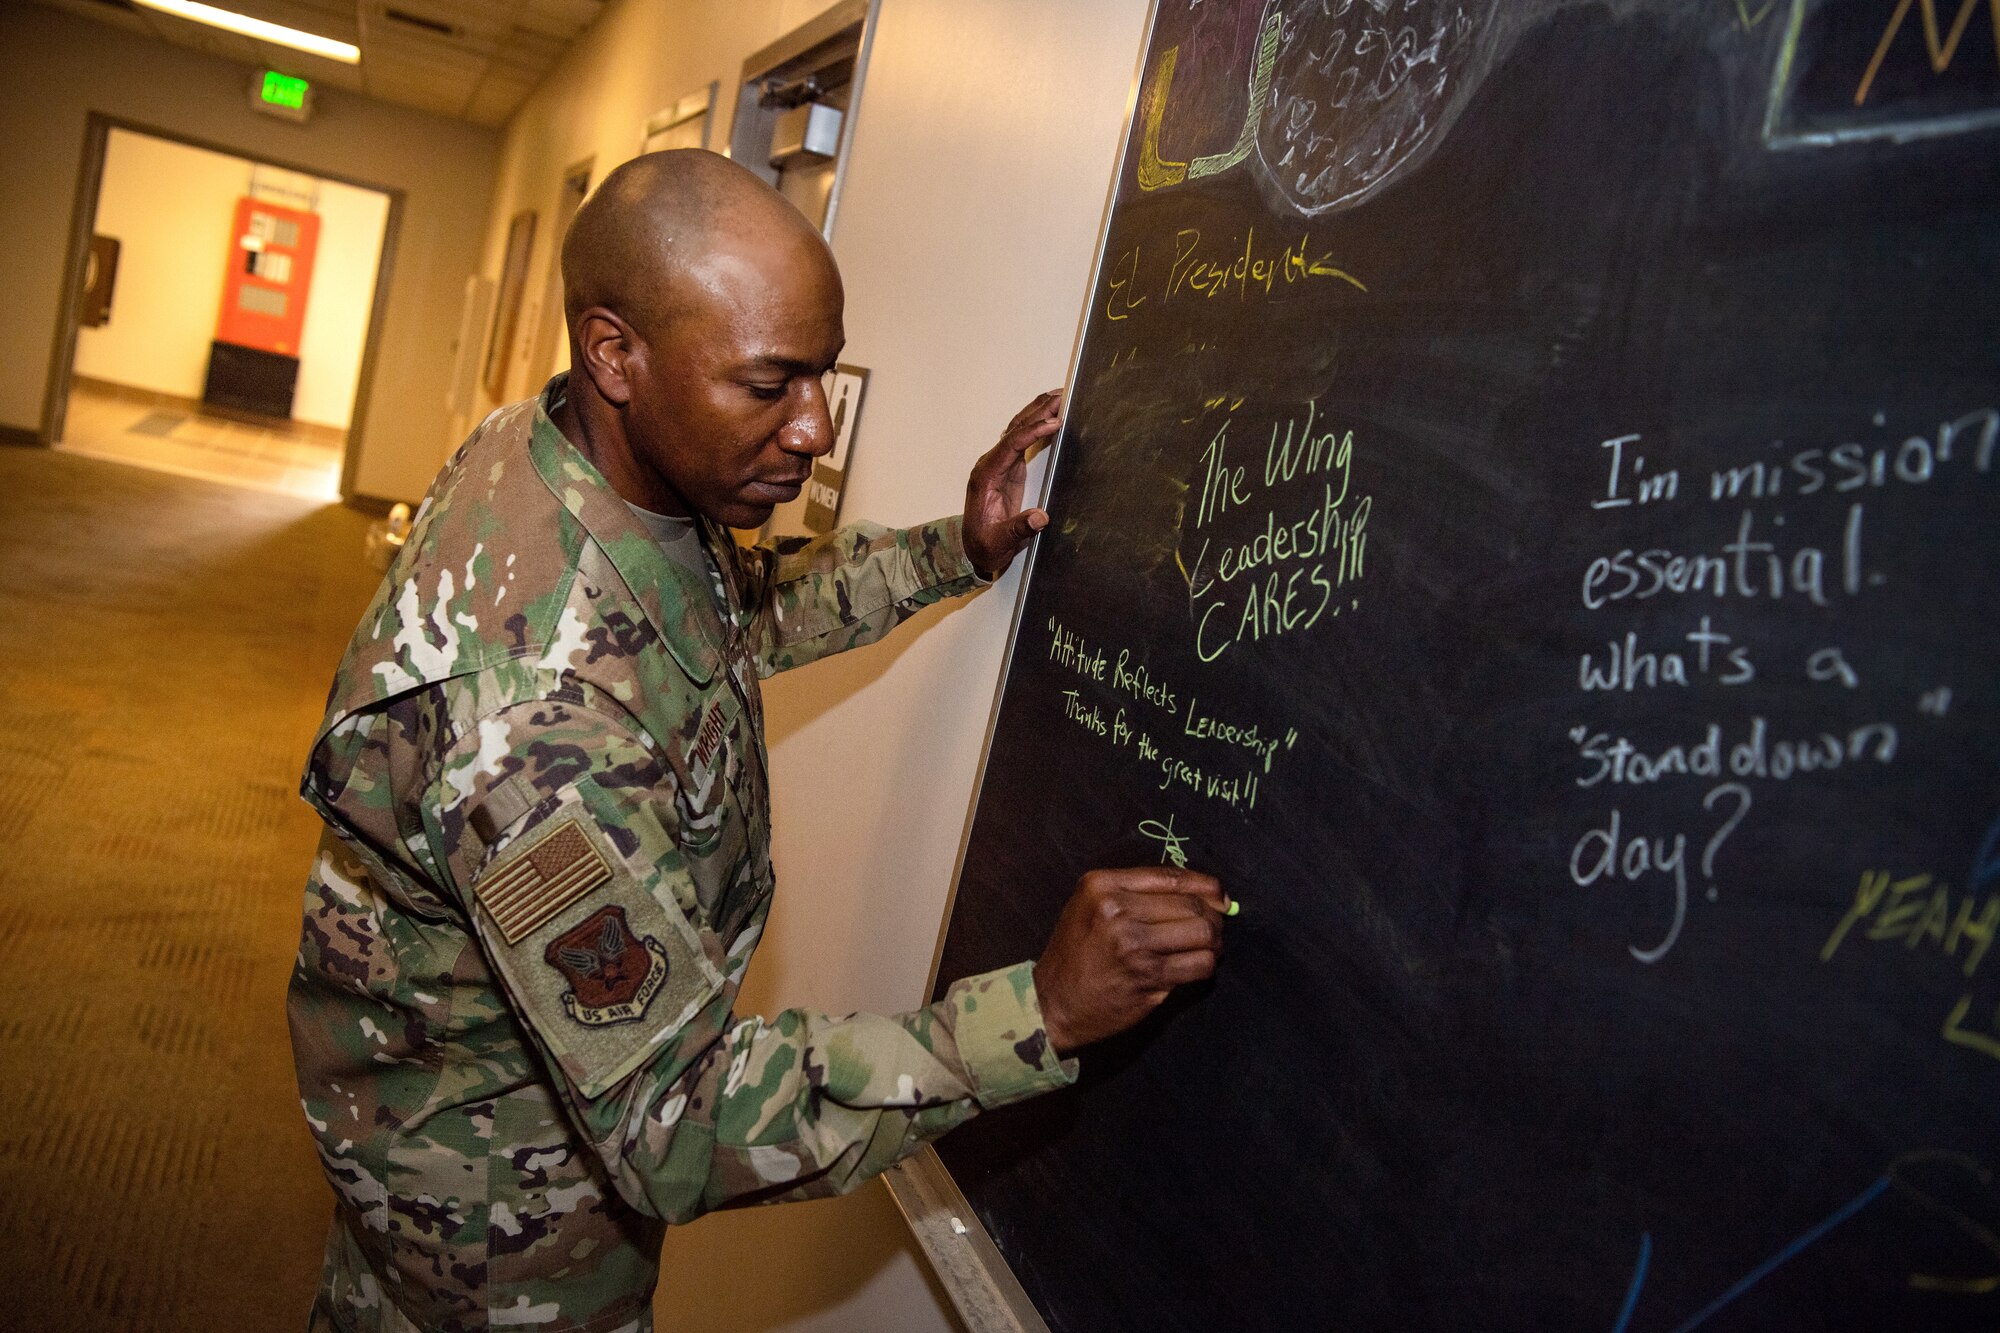 EXIT
WOMEN
El Presidente
The Wing
Leadership
CARES!!!
"Attitude Reflects Leadership"
Thanks for the great visit!!
I'm mission
essential.
whats a
"Stand down"
day?
YEAH
WRIGHT
US AIR FORCE